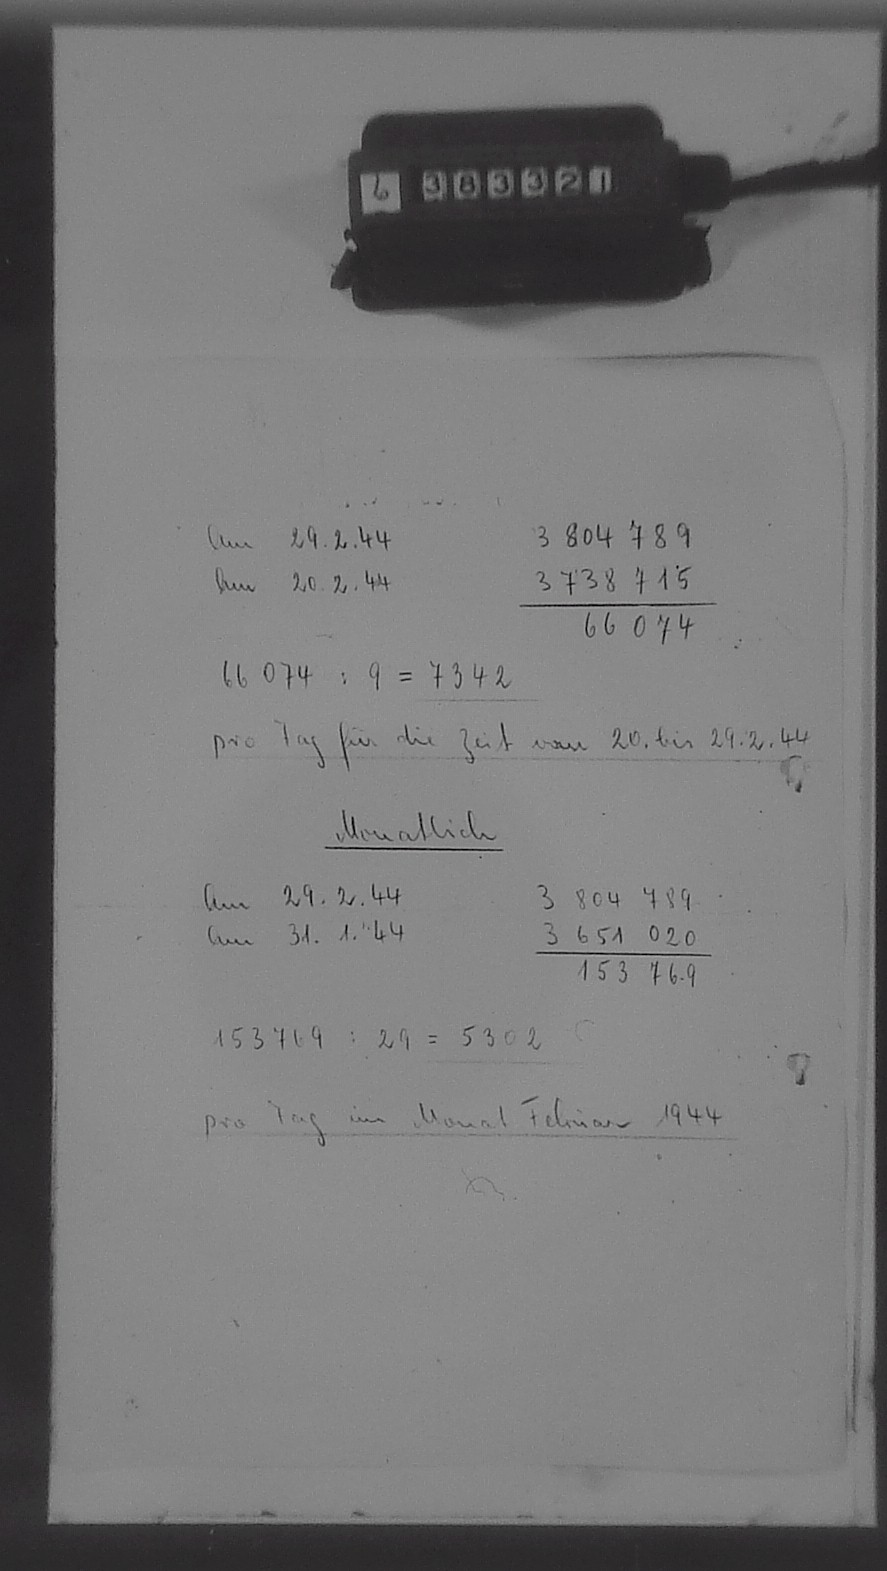 6 383321
Am 29.2.44 3 804 789
Am 20.2.44 3 738 715
66 074
66 074 : 9 = 7342
pro Tag für die Zeit vom 20. bis 29.2.44
Monatlich
Am 29.2.44 3 804 789
Am 31.1.44 3 651 020
153 769
153769 : 29 = 5302
pro Tag im Monat Februar 1944